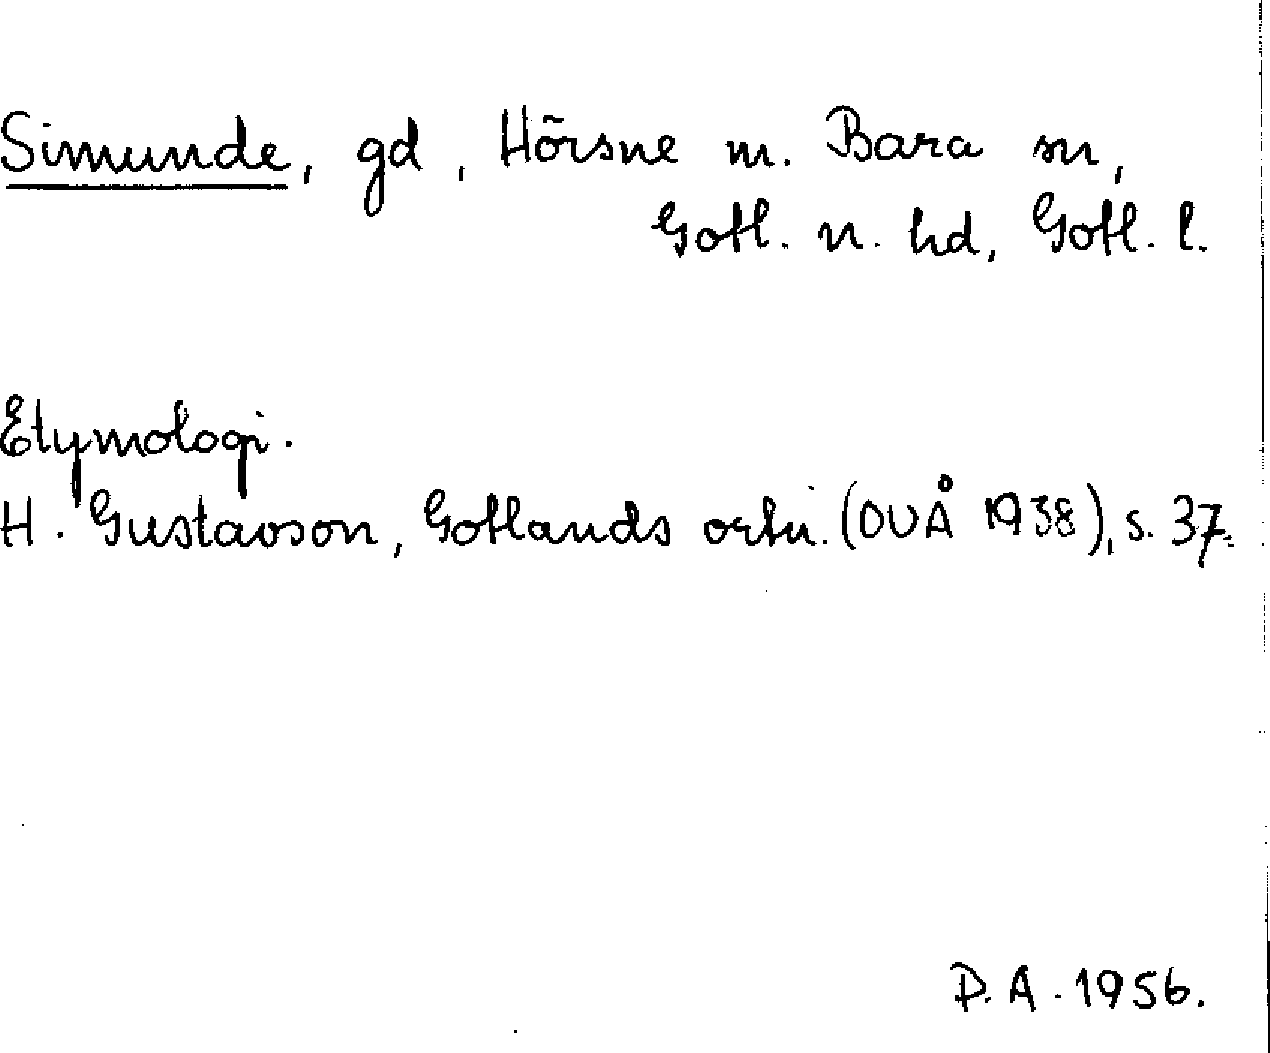 Simunde, gd, Hörsne m. Bara sn,
Gotl. n. hd, Gotl. l.
Etymologi.
H. Gustavson, Gotlands ortn. (OUÅ 1938), s. 37.
P.A. 1956.